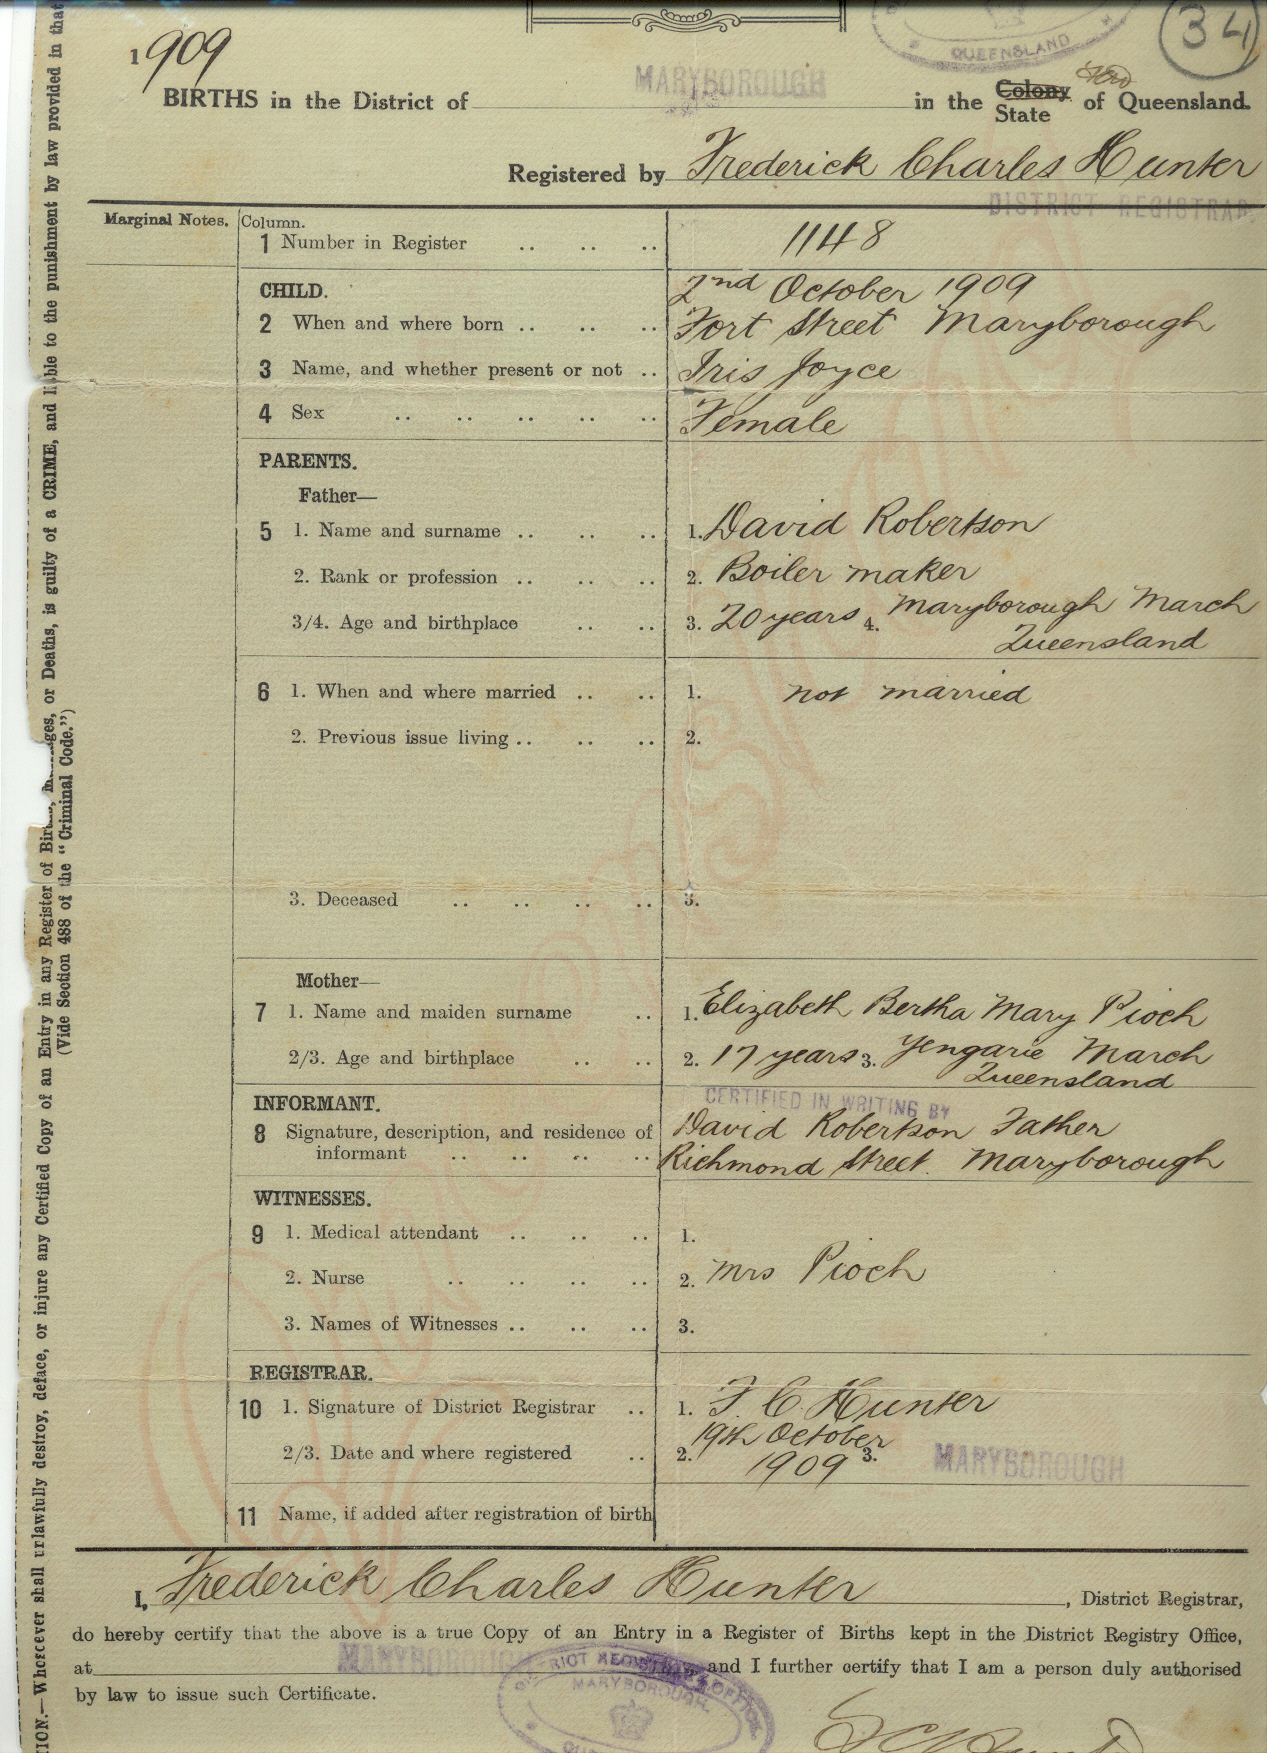 34
QUEENSLAND
1909
MARYBOROUGH
BIRTHS in the District of in the Colony State of Queensland.
Registered by Frederick Charles Hunter
DISTRICT REGISTRAR.
Marginal Notes. Column.
1 Number in Register .. .. .. 1148
CHILD. 2nd October 1909
2 When and where born .. .. .. Fort Street Maryborough
3 Name, and whether present or not .. Iris Joyce
4 Sex .. .. .. .. .. Female
PARENTS.
Father—
5 1. Name and surname .. .. .. 1. David Robertson
2. Rank or profession .. .. .. 2. Boiler maker
3/4. Age and birthplace .. .. 3. 20 years 4. Maryborough March
Queensland
6 1. When and where married .. .. 1. not married
2. Previous issue living .. .. .. 2.
3. Deceased .. .. .. .. 3.
Mother—
7 1. Name and maiden surname .. 1. Elizabeth Bertha Mary Pioch
2/3. Age and birthplace .. .. 2. 17 years 3. Yengarie March
Queensland
INFORMANT. CERTIFIED IN WRITING BY
8 Signature, description, and residence of David Robertson Father
informant .. .. .. .. Richmond Street. Maryborough
WITNESSES.
9 1. Medical attendant .. .. .. 1.
2. Nurse .. .. .. .. 2. Mrs Pioch
3. Names of Witnesses .. .. .. 3.
REGISTRAR.
10 1. Signature of District Registrar .. 1. F. C. Hunter
19th October
2/3. Date and where registered .. 2. 1909 3. MARYBOROUGH
11 Name, if added after registration of birth
I, Frederick Charles Hunter, District Registrar,
do hereby certify that the above is a true Copy of an Entry in a Register of Births kept in the District Registry Office,
at MARYBOROUGH and I further certify that I am a person duly authorised
by law to issue such Certificate.
DISTRICT REGISTRAR'S OFFICE
MARYBOROUGH.
TION.—Whoever shall unlawfully destroy, deface, or injure any Certified Copy of an Entry in any Register of Births, or Deaths, is guilty of a CRIME, and liable to the punishment by law provided in that
(Vide Section 488 of the "Criminal Code.")